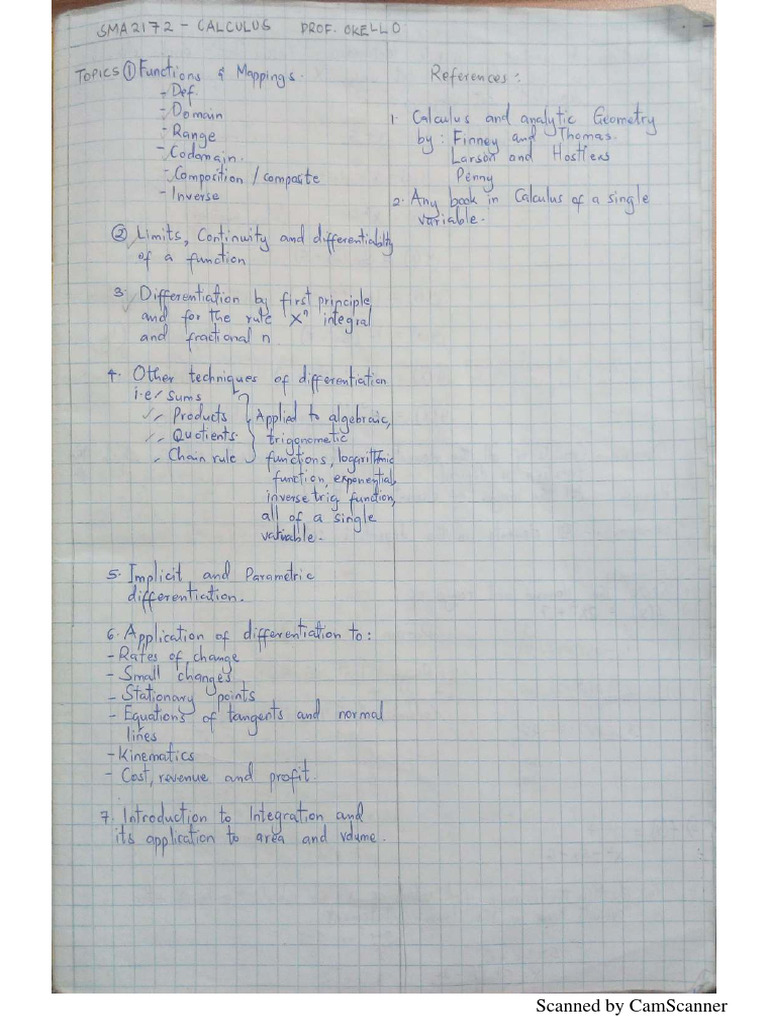 SMA2172 - CALCULUS PROF. OKELLO
TOPICS ① Functions & Mappings.
- Def.
- Domain
- Range
- Codomain.
- Composition / composite
- Inverse
② Limits, Continuity and differentiablty
of a function
3. Differentiation by first principle
and for the rule xⁿ integral
and fractional n
4. Other techniques of differentiation
i.e/ sums
- Products
- Quotients
- Chain rule
Applied to algebraic,
trigonometic
functions, logarithmic
function, exponential,
inverse trig function,
all of a single
variable.
5. Implicit and Parametric
differentiation.
6. Application of differentiation to:
- Rates of change
- Small changes
- Stationary points
- Equations of tangents and normal
lines
- Kinematics
- Cost, revenue and profit.
7. Introduction to Integration and
its application to area and volume.
References:
1. Calculus and analytic Geometry
by: Finney and Thomas.
Larson and Hostlers
Penny
2. Any book in Calculus of a single
variable.
Scanned by CamScanner